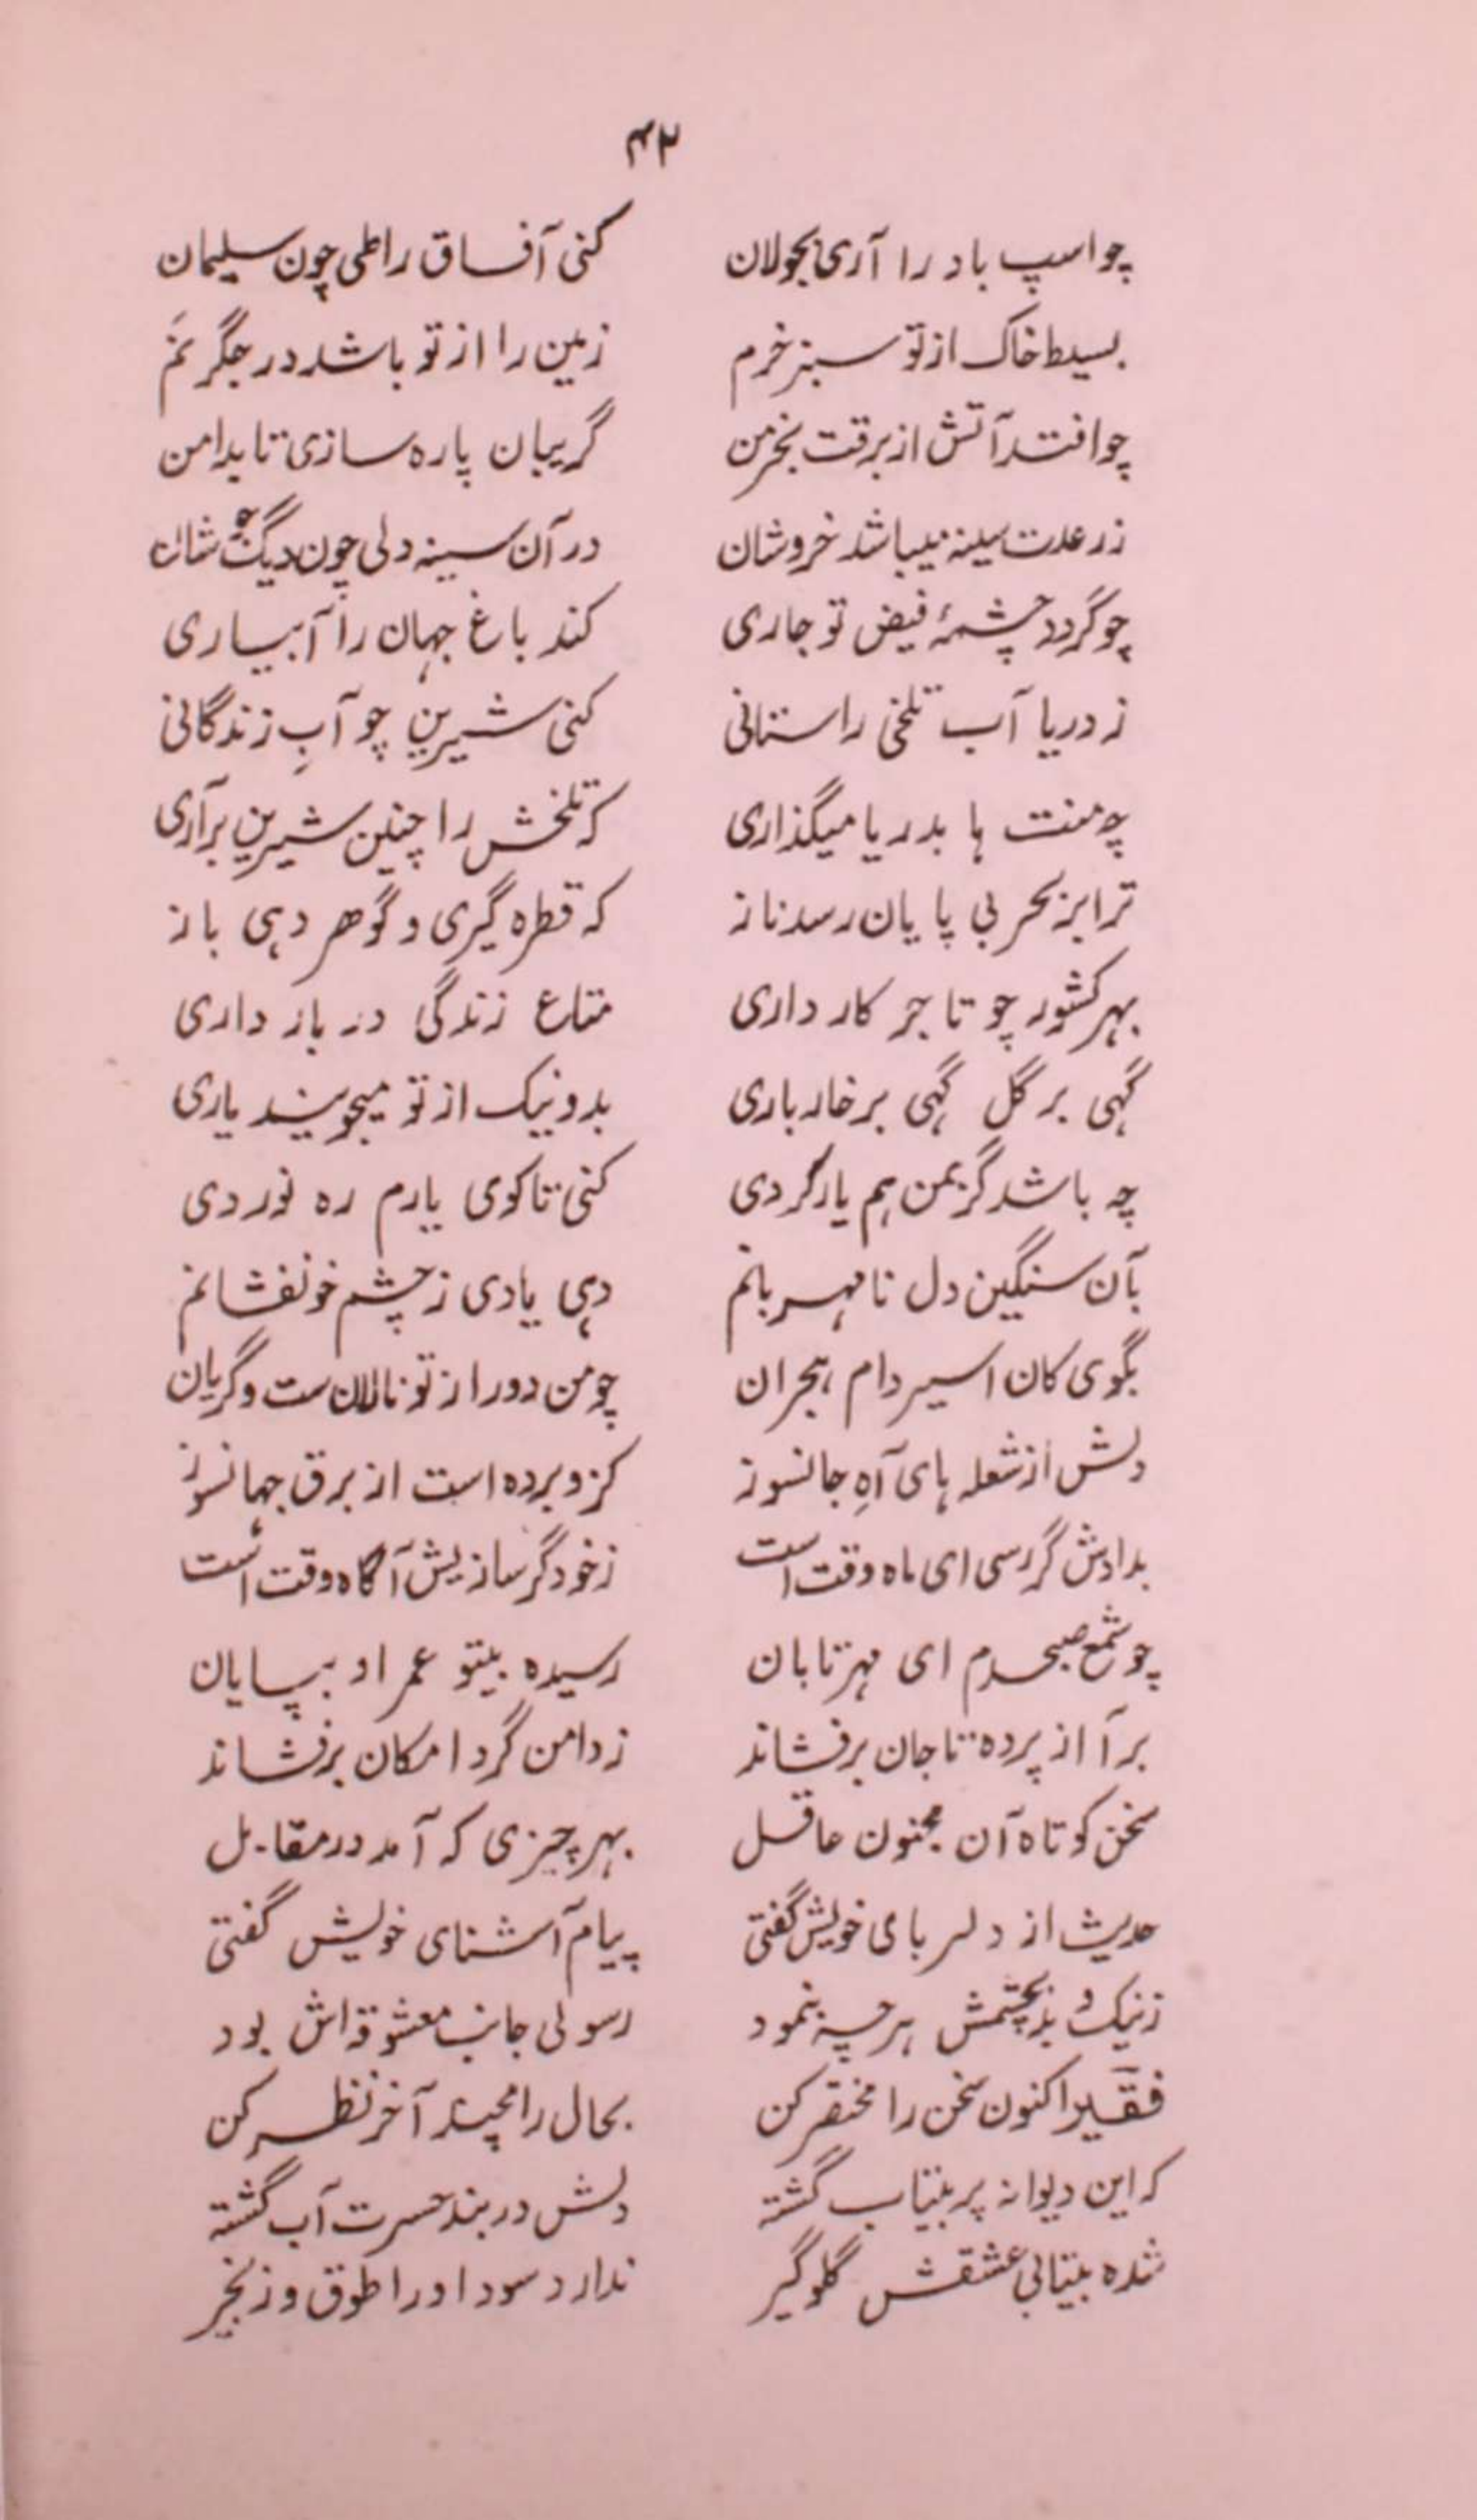 ۴۲
چو اسپ باد را آری بجولان کنی آفاق را طی چون سلیمان
بسیط خاک از تو سبز خرم زمین را از تو باشد در جگر نم
چو افتد آتش از برقت بخرمن گریبان پاره سازی تا بدامن
ز رعدت سینه میباشد خروشان در آن سینه دلی چون دیگ جوشان
چو گردد چشمهٔ فیض تو جاری کند باغ جهان را آبیاری
ز دریا آب تلخی را ستانی کنی شیرین چو آبِ زندگانی
چه منت ها بدریا میگذاری که تلخش را چنین شیرین برآری
ترا بز بحر بی پایان رسد ناز که قطره گیری و گوهر دهی باز
بهر کشور چو تاجر کار داری متاع زندگی در بار داری
گهی بر گل گهی بر خار باری بد و نیک از تو میجویند یاری
چه باشد گر بمن هم یار گردی کنی تا کوی یارم ره نوردی
بآن سنگین دل نا مهربانم دهی یادی ز چشم خونفشانم
بگوی کان اسیر دام هجران چو من دور از تو نالان ست و گریان
دلش از شعله های آهِ جانسوز گرو برده است از برق جهانسوز
بدادش گر رسی ای ماه وقت است ز خود گر سازیش آگاه وقت است
چو شمع صبحدم ای مهر تابان رسیده بیتو عمر او بپایان
برآ از پرده تا جان برفشاند ز دامن گرد امکان برفشاند
سخن کوتاه آن مجنون عاقل بهر چیزی که آمد در مقابل
حدیث از دلربای خویش گفتی پیام آشنای خویش گفتی
ز نیک و بد بچشمش هر چه بنمود رسولی جانب معشوقه اش بود
فقیر اکنون سخن را مختصر کن بحال رامچند آخر نظر کن
که این دیوانه پر بیتاب گشته دلش در بند حسرت آب گشته
شده بیتابی عشقش گلوگیر ندارد سود او را طوق و زنجیر